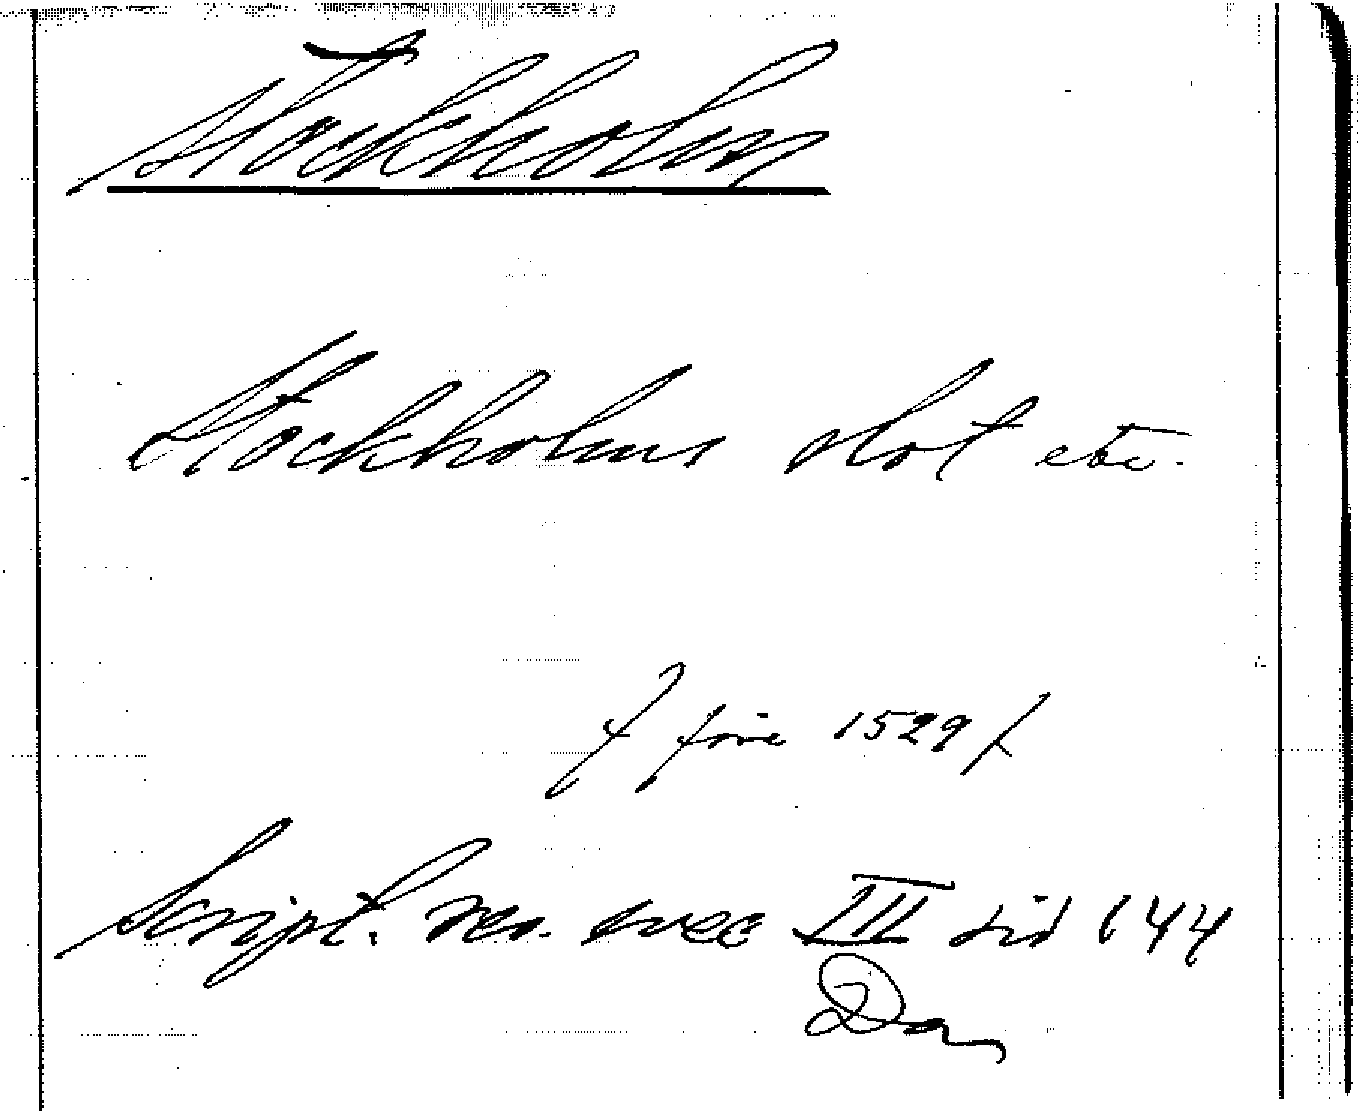 Stockholm
Stockholms slot etc.
/ före 1529 /
Script. rer. svec III sid 144